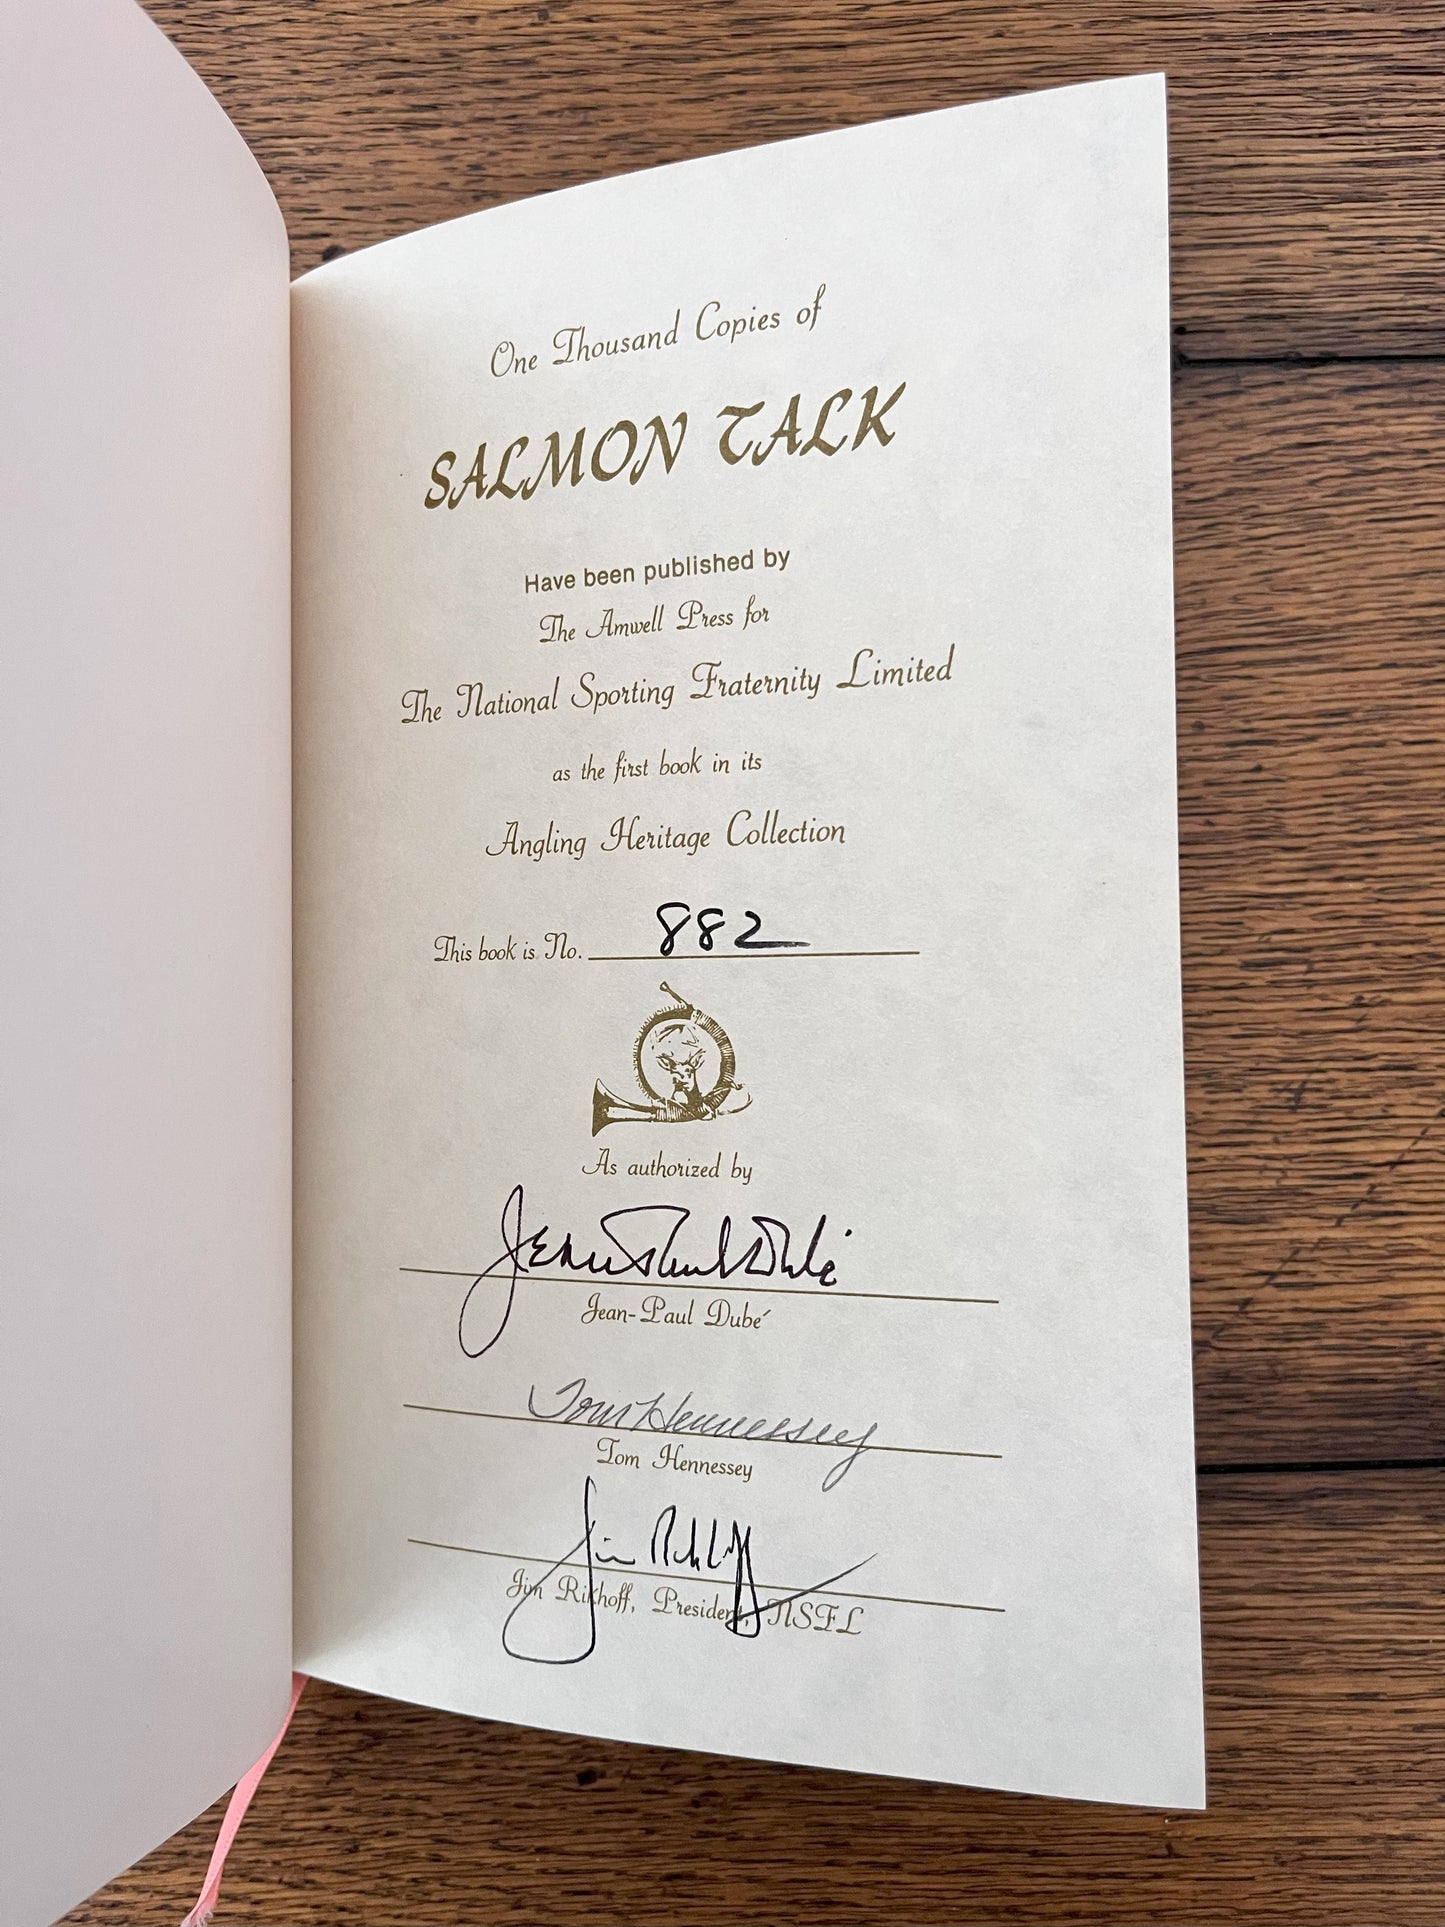 One Thousand Copies of
SALMON TALK
Have been published by
The Amwell Press for
The National Sporting Fraternity Limited
as the first book in its
Angling Heritage Collection
This book is No. 882
As authorized by
Jean Paul Dubé
Jean-Paul Dubé
Tom Hennessey
Tom Hennessey
Jim Rikhoff
Jim Rikhoff, President, NSFL